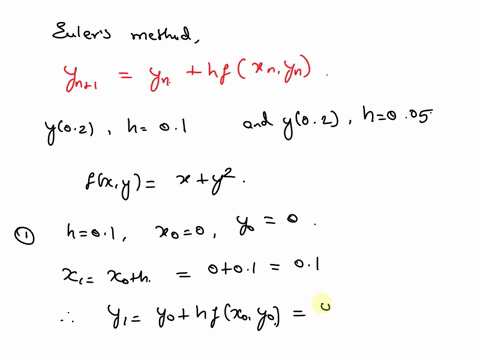 Euler's method,
y_{n+1} = y_n + hf(x_n, y_n).
y(0.2), h = 0.1 and y(0.2), h = 0.05.
f(x,y) = x + y².
① h = 0.1, x₀ = 0, y₀ = 0.
x₁ = x₀+h. = 0+0.1 = 0.1
∴ y₁ = y₀ + hf(x₀, y₀) =